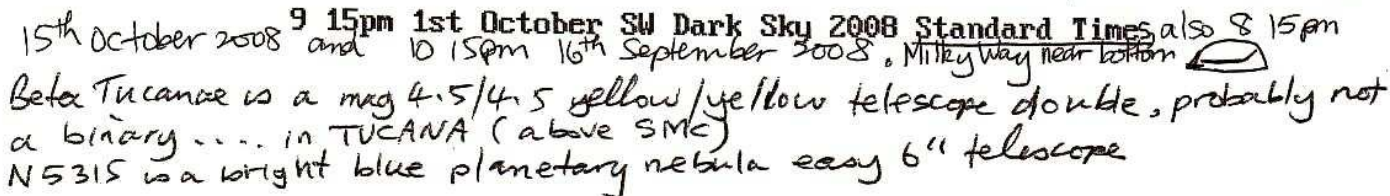 9 15pm 1st October SW Dark Sky 2008 Standard Times, also 8 15pm
15th October 2008 and 10 15pm 16th September 2008. Milky Way near bottom
Beta Tucanae is a mag 4.5/4.5 yellow/yellow telescope double, probably not
a binary .... in TUCANA (above SMC)
N5315 is a bright blue planetary nebula easy 6" telescope